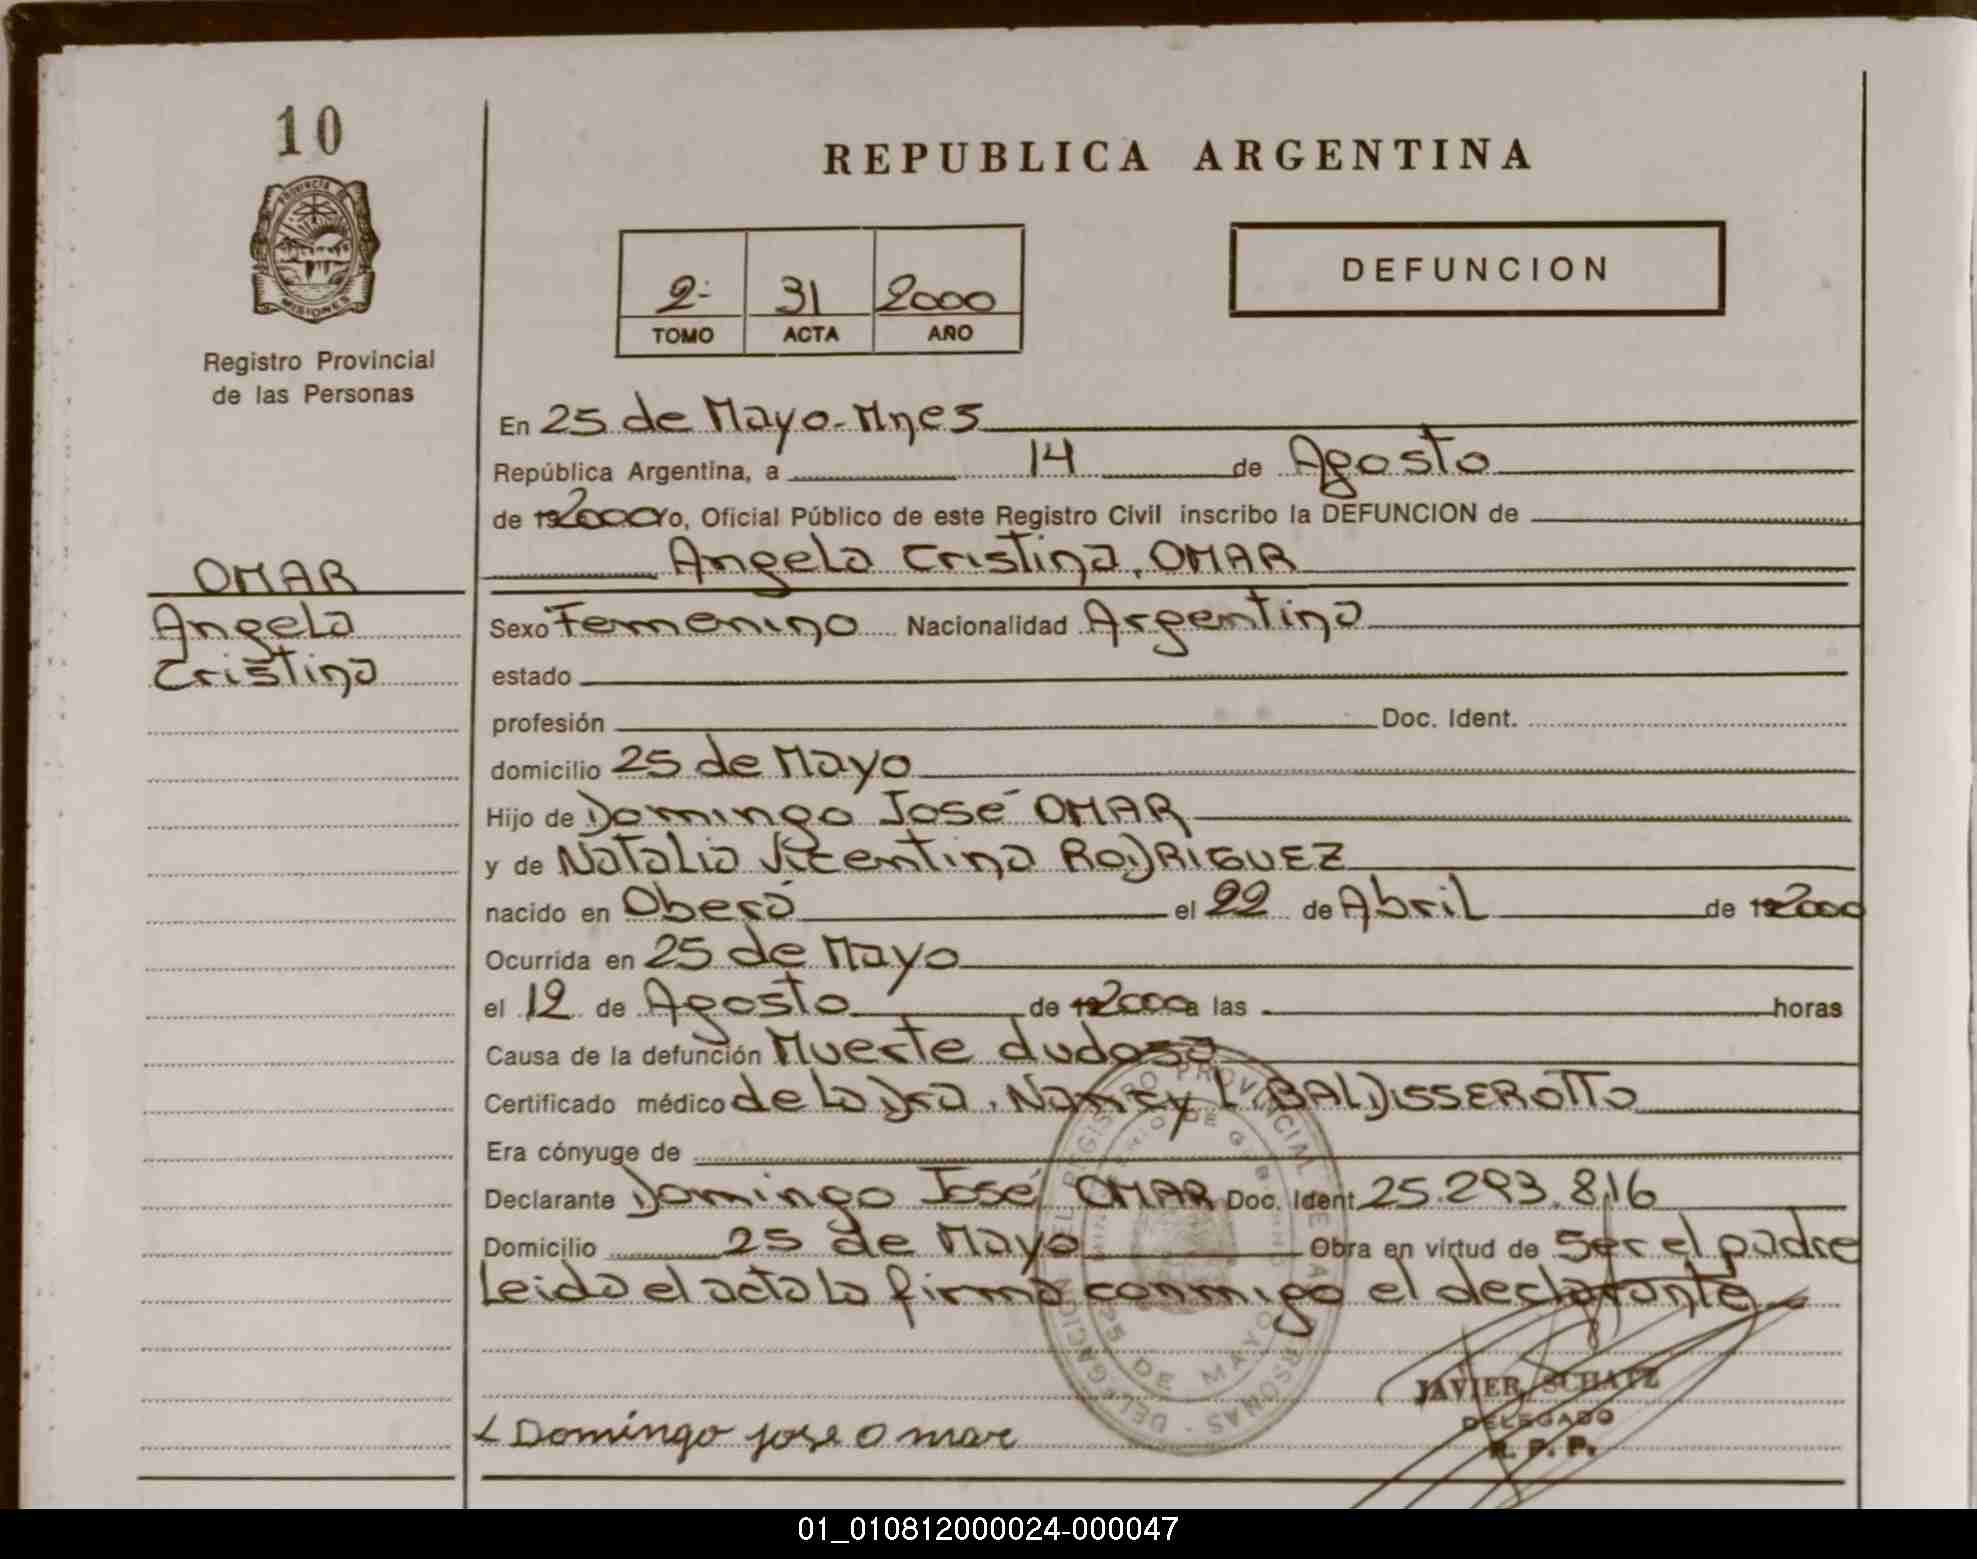 10
PROVINCIA DE
MISIONES
Registro Provincial
de las Personas
REPUBLICA ARGENTINA
2- 31 2000
TOMO ACTA AÑO
DEFUNCION
En 25 de Mayo-Mnes
República Argentina, a 14 de Agosto
de 192000 Yo, Oficial Público de este Registro Civil inscribo la DEFUNCION de
Angela Cristina, OMAR
OMAR
Angela
Cristina
Sexo Femenino Nacionalidad Argentina
estado
profesión Doc. Ident.
domicilio 25 de Mayo
Hijo de Domingo José OMAR
y de Natalia Vicentina RODRIGUEZ
nacido en Oberá el 22 de Abril de 192000
Ocurrida en 25 de Mayo
el 12 de Agosto de 192000 a las horas
Causa de la defunción Muerte dudosa
Certificado médico de la Dra. Nancy L. BALDISSEROTTO
Era cónyuge de
Declarante Domingo José OMAR Doc. Ident. 25.293.816
Domicilio 25 de Mayo Obra en virtud de ser el padre
Leida el acta la firma conmigo el declarante
DELEGACION DEL REGISTRO PROVINCIAL DE LAS PERSONAS
MINISTERIO DE GOBIERNO
25 DE MAYO
JAVIER SCHATZ
DELEGADO
R. P. P.
Domingo jose Omar
01_010812000024-000047